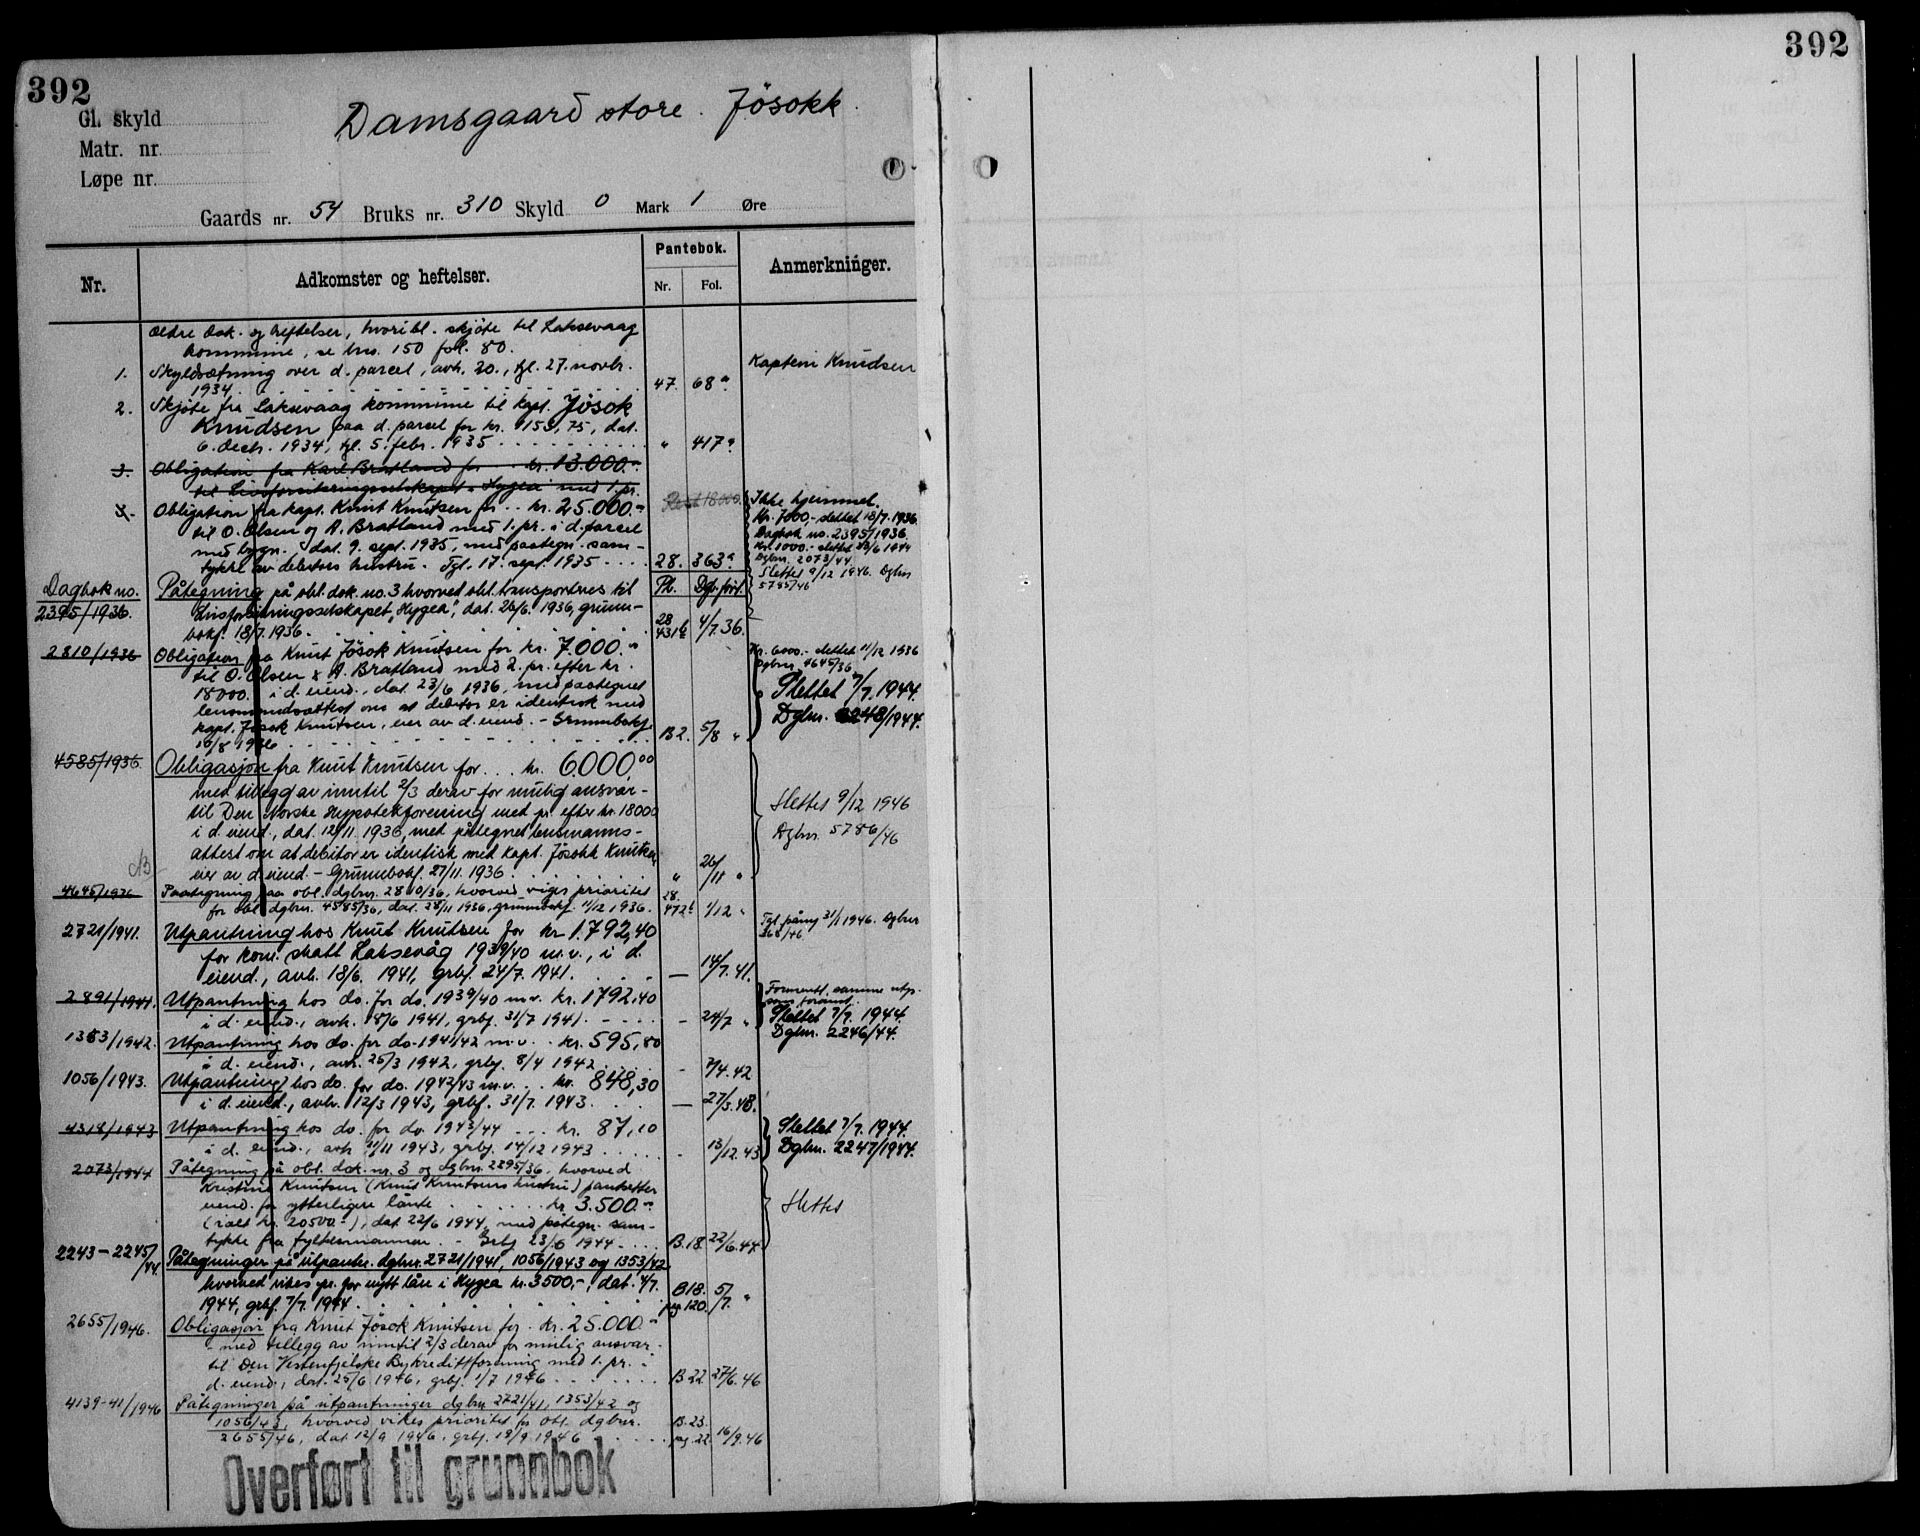 392
392
Damsgaard store. Jösokk.
Gl. skyld
Matr. nr.
Løpe nr.
Gaards nr. 54 Bruks nr. 310 Skyld 0 Mark 1 Øre
Nr.
Adkomster og heftelser.
Pantebok.
Nr. Fol.
Anmerkninger.
Ældre dok. og heftelser, hvoribl. skjöte til Laksevaag
kommune, se bns. 150 fol. 80.
1. Skyldsætning over d. parcel, avh. 20., tgl. 27. novbr.
1934 47. 68a Kaptein Knudsen
2. Skjöte fra Laksevaag kommune til kapt. Jösok
Knudsen paa d. parcel for kr. 153,75, dat.
6. decbr. 1934, tgl. 5. febr. 1935 " 417a
3. Obligation fra Karl Bratland for kr. 13.000.-
til Livsforsikringsselskapet "Hygea" med 1. pr.
Obligation fra kapt. Knut Knutsen for kr. 25.000.- Rest 18000. Ikke hjemmel.
til O. Olsen og A. Bratland med 1. pr. i d. parcel Kr. 7000,- slettet 18/7. 1936.
Dagbok no. 2395/1936.
med bygn., dat. 9. sept. 1935, med paategn. sam- Kr. 1000.- slettet 23/6 1944
Dgbnr. 2073/44.
tykke av debitors hustru. Tgl. 17. sept. 1935 28. 363a
Slettet 9/12 1946. Dgbnr
5785/46
Dagbok no. Påtegning på obl. dok. no. 3 hvorved obl. transporteres til Pb. Dgb. fört.
2395/1936. Livsforsikringsselskapet "Hygea", dat. 26/6. 1936, grunn-
bokf. 18/7. 1936. 28 431b 4/7. 36.
2810/1936 Obligation fra Knut Jösok Knutsen for kr. 7.000.- Kr. 6000.- slettet 11/12 1936
til O. Olsen & A. Bratland med 2. pr. efter kr. Dgbnr 4645/36
18000. i d. eiend., dat. 23/6 1936, med paategnet Slettet 7/7. 1944.
lensmandsattest om at debitor er identisk med Dgbnr. 2248/1944.
kapt. Jösok Knutsen, eier av d. eiend. - Grunnbokf.
10/8 1936 B 2. 5/8 "
4585/1936. Obligasjon fra Knut Knutsen for kr. 6000,00
med tillegg av inntil 2/3 derav for mulig ansvar -
til Den Norske Hypotekforening med pr. efter kr. 18000 Slettet 9/12 1946
i d. eiend., dat. 12/11. 1936, med påtegnet lensmanns- Dgbnr. 5786/46
attest om at debitor er identisk med kapt. Jösokk Knutsen
eier av d. eiend. - Grunnbokf. 27/11. 1936 " 26/11 "
4645/1936 Paategning paa obl. dgbnr. 2810/36, hvorved viges prioritet
for obl. dgbnr. 4585/36, dat. 28/11 1936, grunnbokf. 11/12 1936. 28. 472b 1/12 "
2721/1941. Utpantning hos Knut Knutsen for kr 1.792,40 Tgl. påny 31/1 1946. Dgbnr
368/46.
for kom. skatt Laksevåg 1939/40 m.v., i d.
eiend., avh. 18/6. 1941, grbf. 24/7. 1941. — 14/7. 41.
2891/1941. Utpantning hos do. for do. 1939/40 m.v. kr. 1792,40 Forment. samme utp.
som foranst.
i d. eiend., avh. 18/6 1941, grbf. 31/7 1941. - 24/7 " Slettet 7/7. 1944.
1353/1942. Utpantning hos do. for do. 1941/42 m.v. kr. 595,80 Dgbnr. 2246/44.
i d. eiend., avh. 25/3 1942, grbf. 8/4 1942 - 7/4. 42
1056/1943. Utpantning hos do. for do. 1942/43 m.v. kr. 848,30
i d. eiend., avh. 12/3 1943, grbf. 31/7. 1943. — 27/3. 43.
4318/1943 Utpantning hos do. for do. 1943/44 kr. 87,10 Slettet 7/7. 1944.
i d. eiend., avh. 11/11 1943, grbf. 14/12 1943 - 13/12. 43 Dgbnr. 2247/1944.
2073/1944 Påtegning på obl. dok. nr. 3 og dgbnr. 2395/36, hvorved
Kristine Knutsen (Knut Knutsens hustru) pantsetter
eiend. for ytterligere lånte kr. 3.500.- Slettet
(ialt kr. 20500.-), dat. 22/6 1944, med påtegn. sam-
tykke fra fylkesmannen. - Grbf 23/6 1944 B. 18. 22/6. 44
2243-2245/44. Påtegninger på utpantn. dgbnr. 2721/1941, 1056/1943 og 1353/42
hvorved vikes pr. for nytt lån i Hygea kr. 3500,-, dat. 4/7. B 18. 5/7. "
1944, grbf. 7/7. 1944. pg. 120.
2655/1946. Obligasjon fra Knut Jösok Knutsen for kr. 25.000.-
- med tillegg av inntil 2/3 derav for mulig ansvar -
til Den Vestenfjelske Bykredittforening med 1. pr. i
d. eiend., dat. 25/6 1946, grbf. 1/7 1946 B 22. 27/6. 46
4139-41/1946 Påtegninger på utpantninger dgbnr. 2721/41, 1353/42 og
1056/43, hvorved vikes prioritet for obl. dgbnr. B. 23.
2655/46, dat. 12/9 1946, grbf. 19/9 1946 pg. 22. 16/9. 46
Overført til grunnbok